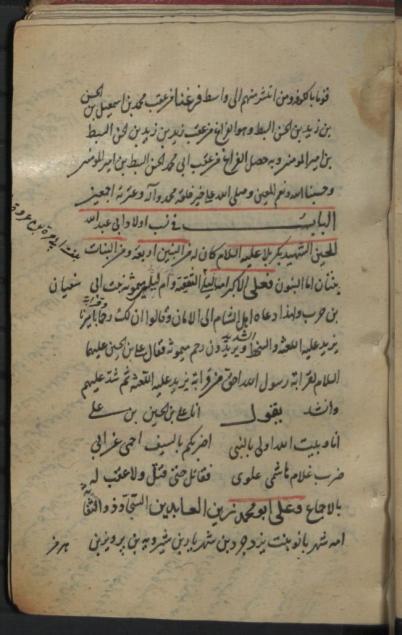 قوما بالكوفة ومن انتشر منهم الى واسط فرغنا من عقب محمد بن اسمعيل بن الحسن
بن زيد بن الحسن السبط وهو الفراغ من عقب زيد بن زيد بن الحسن السبط
بن امير المومنين وبه حصل الفراغ من عقب ابى محمد الحسن السبط بن امير المومنين
وحسبنا الله ونعم المعين وصلى الله على خير خلقه محمد وآله وعترته اجمعين
الباب فى نسب اولاد ابى عبد الله
الحسين الشهيد بكربلا عليه السلام كان له من البنين اربعة ومن البنات
بنتان اما البنون فعلى الاكبر امه ليلى الثقفية وام ليلى ميمونة بنت ابى سفيان
بن حرب ولهذا دعاه اهل الشام الى الامان وقالوا ان لك رحما بامير
يزيد عليه اللعنة والسخط ويريدون رحم ميمونة فقال على بن الحسين عليهما
السلام لقرابة رسول الله احق من قرابة يزيد عليه اللعنة ثم شد عليهم
وانشد يقول انا على بن الحسين بن على
انا وبيت الله اولى بالنبى اضربكم بالسيف احمى عن ابى
ضرب غلام هاشمى علوى فقاتل حتى قتل ولا عقب له
بالاجماع وعلى ابو محمد زين العابدين السجاد ذو الثفنات
امه شهر بانو بنت يزدجرد بن شهريار بن شيرويه بن پرويز بن هرمز